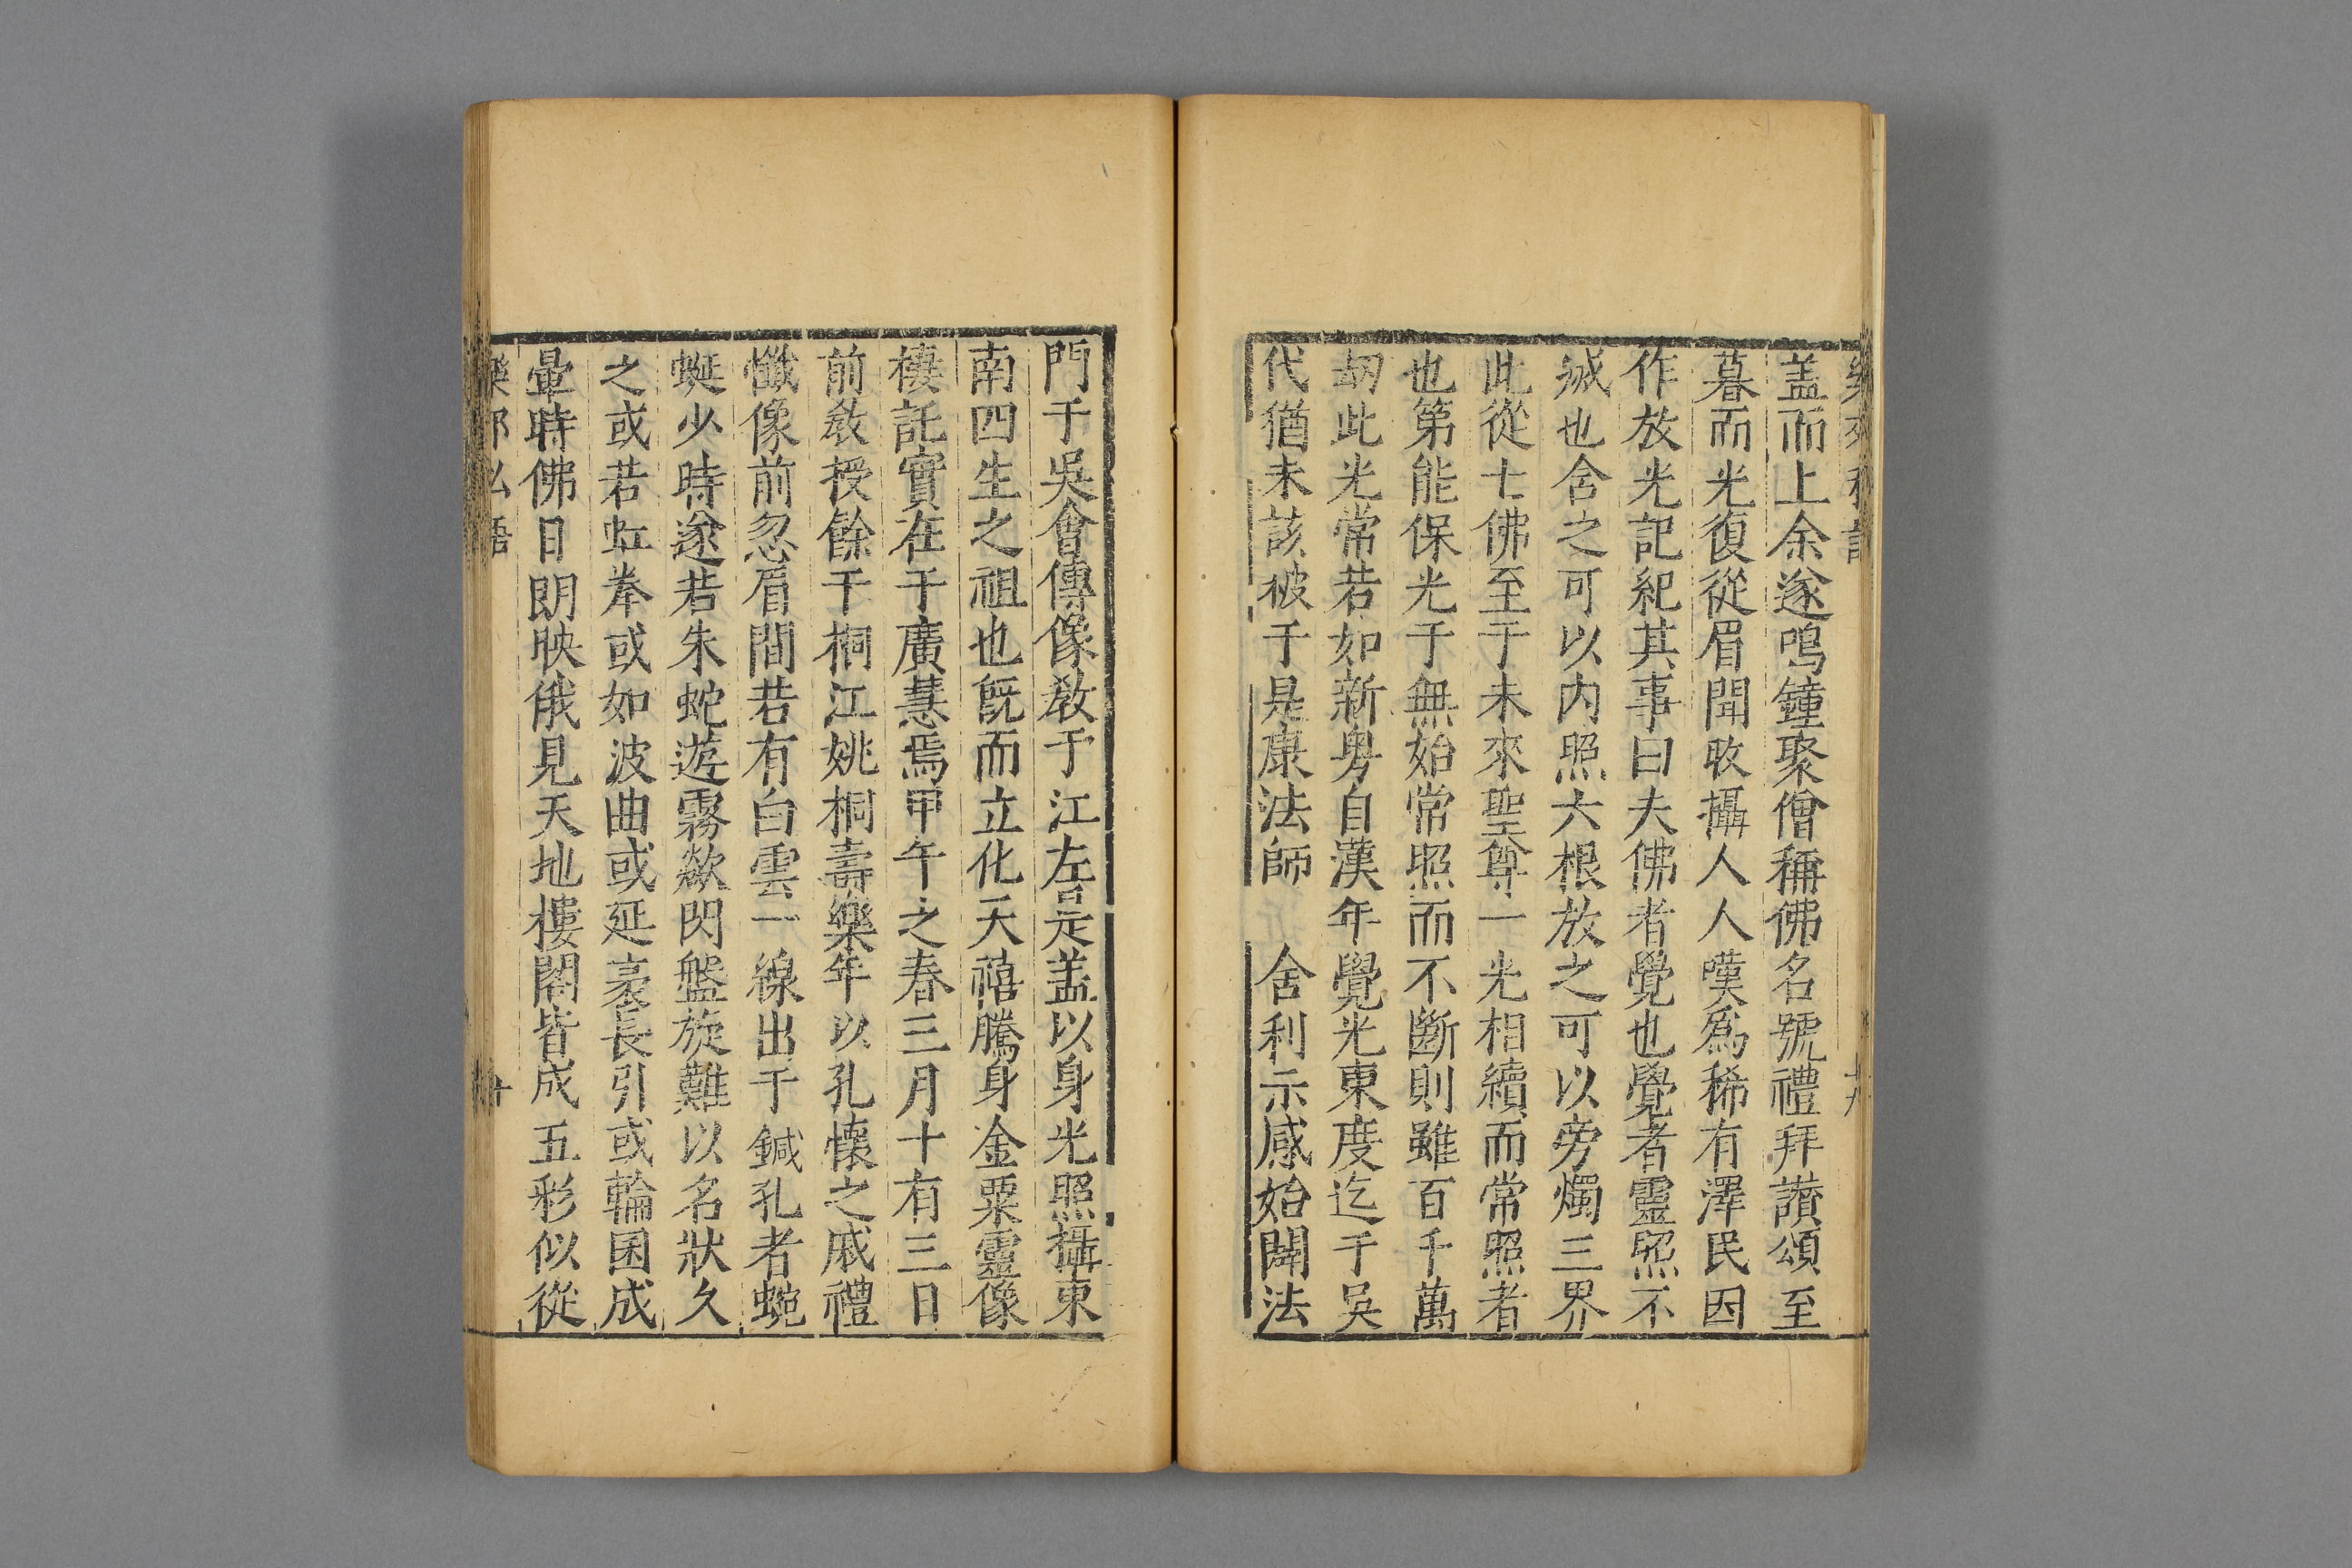 盖而上余遂鳴鐘聚僧稱佛名號禮拜讃頌至
暮而光復從眉間收攝人人嘆爲稀有澤民因
作放光記紀其事曰夫佛者覺也覺者靈照不
滅也舍之可以内照六根放之可以旁燭三界
此從七佛至于未來聖尊一光相續而常照者
也第能保光于無始常照而不斷則雖百千萬
刼此光常若如新粤自漢年覺光東度迄于吴
代猶未該被于是康法師 舍利示感始闢法
門于吴會傳像教于江左是盖以身光照攝東
南四生之祖也旣而立化天禧騰身金粟靈像
棲託實在于廣慧焉甲午之春三月十有三日
前教授餘干桐江姚桐壽樂年以孔懷之戚禮
懺像前忽眉間若有白雲一線出于鍼孔者蜿
蜒少時遂若朱蛇遊霧歘閃盤旋難以名狀久
之或若虹拳或如波曲或延袤長引或輪囷成
暈時佛日朗映俄見天地樓閣皆成五彩似從
樂郊私語 十